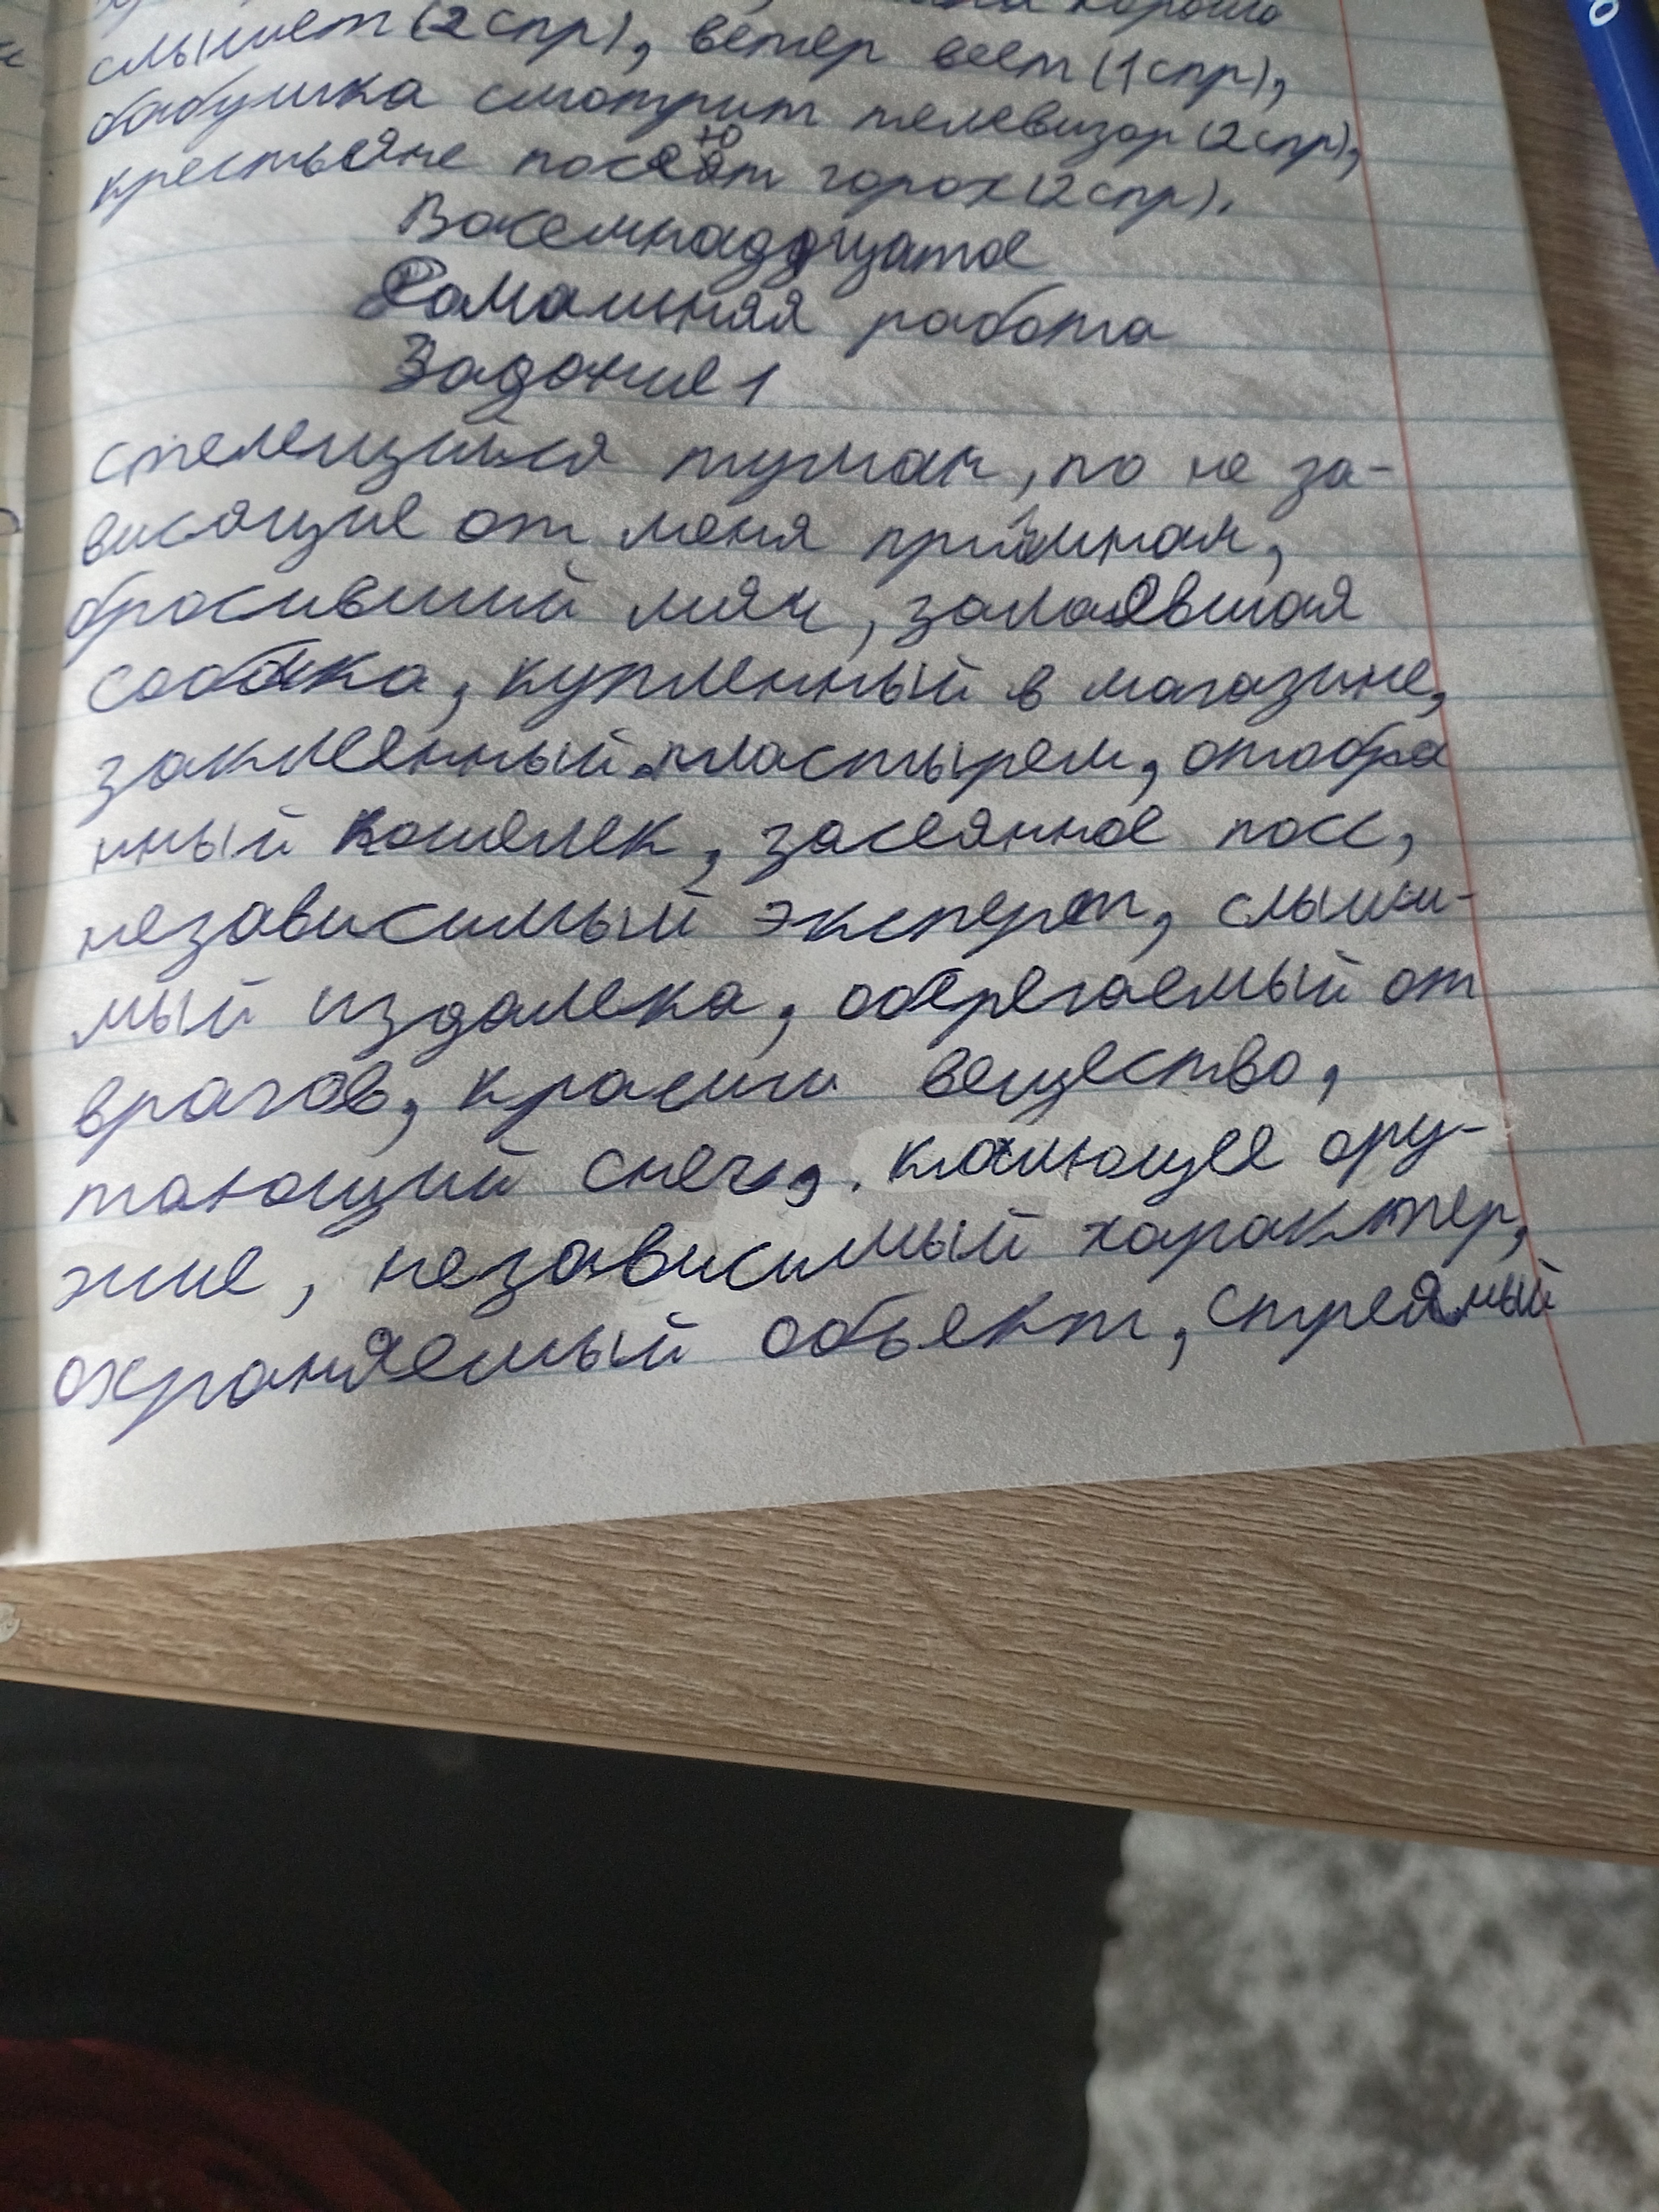 хорошо
слышет (2 спр), ветер веет (1 спр),
бабушка смотрит телевизор (2 спр),
крестьяне посеют горох (2 спр).
Восемнадцатое
Домашняя работа
Задание 1
стелещийся туман, по не за-
висящие от меня причинам,
бросивший мяч, залаевшая
собака, купленный в магазине,
заклеенный пластырем, отобра
нный кошелек, засеянное посе,
независимый эксперт, слыши-
мый издалека, оберегаемый от
врагов, вещество,
тающий снег, колющее ору-
жие, независимый характер,
охраняемый объект,